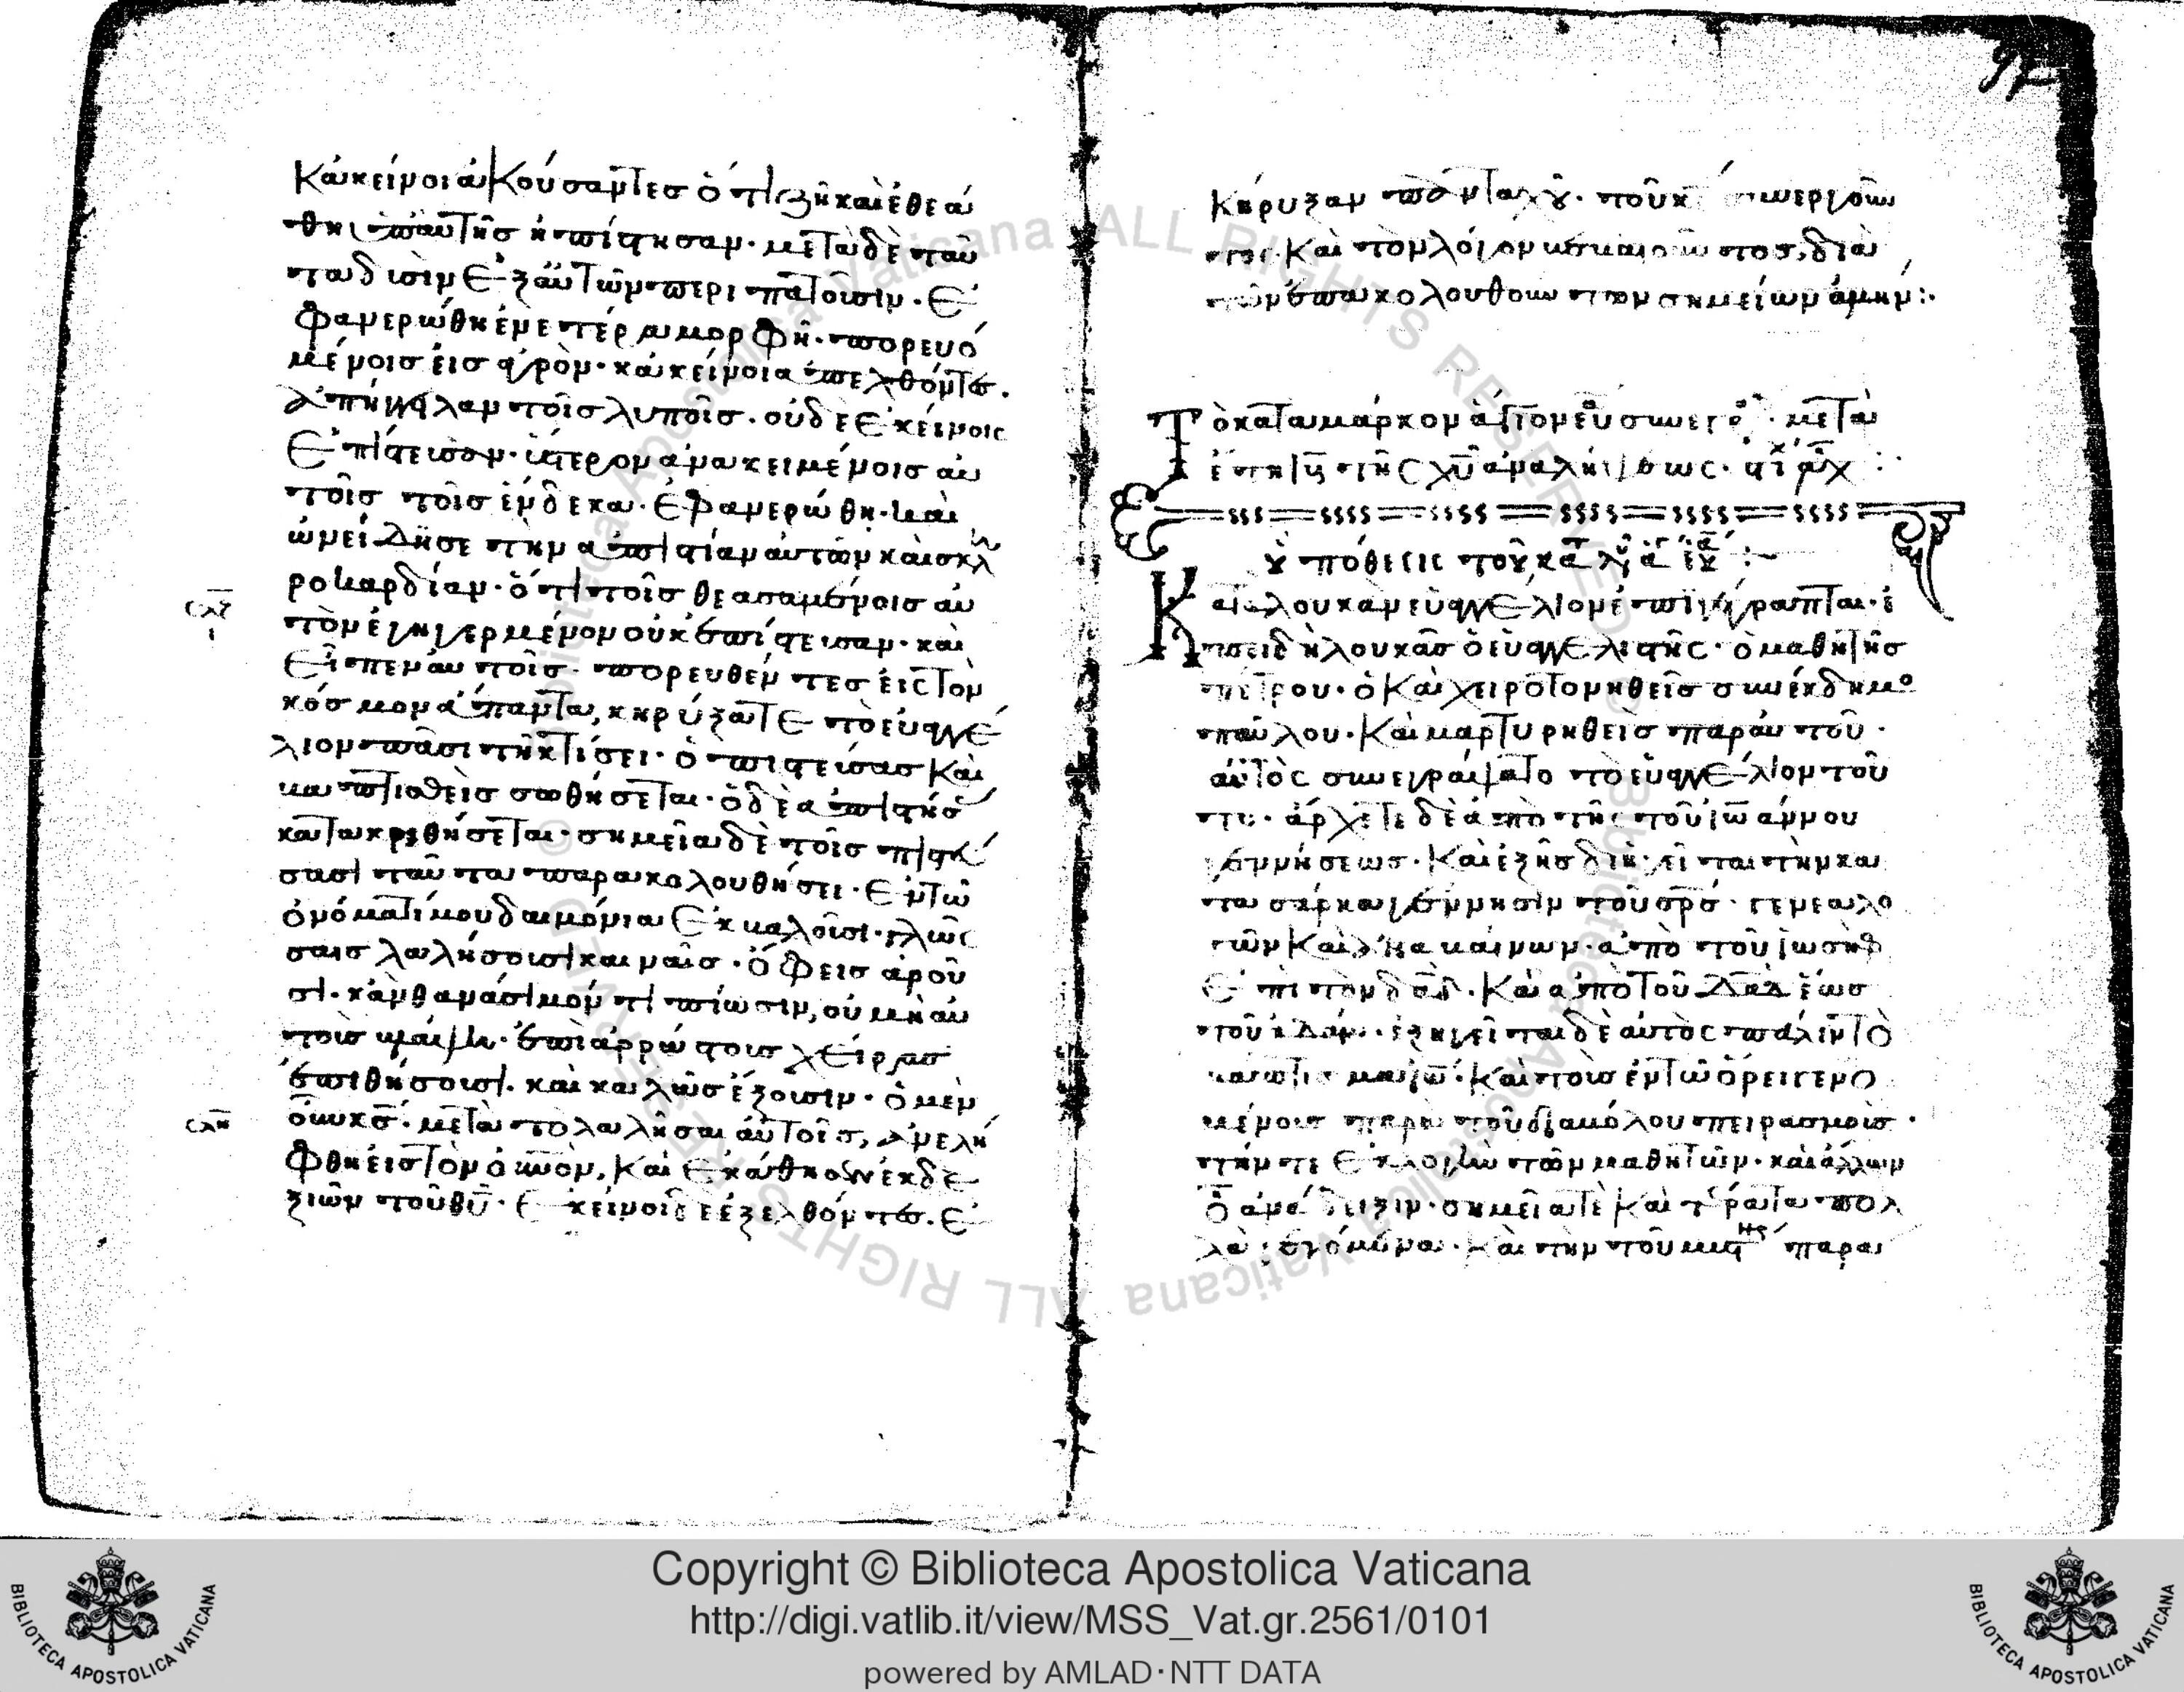 κἀκεῖνοι ἀκούσαντες ὅτι ζῆ καὶ ἐθεά
θη ὑπ' αὐτῆς ἠπίστησαν· μετὰ δὲ ταῦ
τα δυσὶν ἐξ αὐτῶν περιπατοῦσιν· ἐ
φανερώθη ἐν ἑτέρα μορφῆ· πορευο
μένοις εἰς ἀγρόν· κἀκεῖνοι ἀπελθόντες·
ἀπήγγειλαν τοῖς λυποῖς· οὐδὲ ἐκείνοις
ἐπίστευσαν· ὕστερον ἀνακειμένοις αὐ
τοῖς τοῖς ἕνδεκα· ἐφανερώθη· καὶ
ὠνείδησε τὴν ἀπιστίαν αὐτῶν καὶ σκλη
ροκαρδίαν· ὅτι τοῖς θεασαμένοις αὐ
τὸν ἐγηγερμένον οὐκ ἐπίστευσαν· καὶ
εἶπεν αὐτοῖς· πορευθέντες εἰς τὸν
κόσμον ἅπαντα, κηρύξατε τὸ εὐαγγέ
λιον πάση τῆ κτίσει· ὁ πιστεύσας καὶ
βαπτισθεὶς σωθήσεται· ὁ δὲ ἀπιστήσας
κατακριθήσεται· σημεῖα δὲ τοῖς πιστεύ
σασι ταῦτα παρακολουθήσει· ἐν τῶ
ὀνόματί μου δαιμόνια ἐκβαλοῦσι· γλώσ
σαις λαλήσουσι καιναῖς· ὄφεις ἀροῦ
σι· κἂν θανάσιμόν τι πίωσιν, οὐ μὴ αὐ
τοὺς βλάψη· ἐπὶ ἀρρώστους χεῖρας
ἐπιθήσουσι· καὶ καλῶς ἕξουσιν· ὁ μὲν
οὖν κς· μετὰ τὸ λαλῆσαι αὐτοῖς, ἀνελή
φθη εἰς τὸν οὐνον, καὶ ἐκάθησεν ἐκ δε
ξιῶν τοῦ θυ· ἐκεῖνοι δὲ ἐξελθόντες· ἐ
σλζ
σλη
κήρυξαν πανταχοῦ· τοῦ κυ συνεργοῦν
τος· καὶ τὸν λόγον βεβαιοῦντος, διὰ
τῶν ἐπακολουθούντων σημείων ἀμήν:·
Τὸ κατὰ μάρκον ἅγιον εὐ μετὰ
τῆς χυ ἀναλήψεως·
ὑπόθεσις τοῦ κατὰ
Κατὰ λουκᾶν εὐαγγέλιον ἐπιγέγραπται· ἐ
πειδὴ λουκᾶς ὁ εὐαγγελιστὴς· ὁ μαθητὴς
πέτρου· ὁ καὶ χειροτονηθεὶς συνέκδημος
παύλου· καὶ μαρτυρηθεὶς παρ' αὐτοῦ·
αὐτὸς συνεγράψατο τὸ εὐαγγέλιον τοῦ
το· ἄρχεται δὲ ἀπὸ τῆς τοῦ ἰωάννου
γεννήσεως· καὶ ἑξῆς διηγεῖται τὴν κα
τὰ σάρκα γέννησιν τοῦ σρς· γενεαλο
γῶν καὶ ἀναβαίνων· ἀπὸ τοῦ ἰωσὴφ
ἐπὶ τὸν δαδ· καὶ ἀπὸ τοῦ δαδ ἕως
τοῦ ἀδάμ· ἐξηγεῖται δὲ αὐτὸς πάλιν τὸ
βάπτισμα ἰω· καὶ τοὺς ἐν τῶ ὄρει γενο
μένους παρὰ τοῦ διαβόλου πειρασμοὺς·
τήν τε ἐκλογὴν τῶν μαθητῶν· καὶ ἄλλων
ο ἀνάδειξιν· σημεῖά τε καὶ τέρατα πολ
λὰ γενόμενα· καὶ τὴν τοῦ παρα
Copyright © Biblioteca Apostolica Vaticana
http://digi.vatlib.it/view/MSS_Vat.gr.2561/0101
powered by AMLAD·NTT DATA
BIBLIOTECA APOSTOLICA VATICANA
BIBLIOTECA APOSTOLICA VATICANA